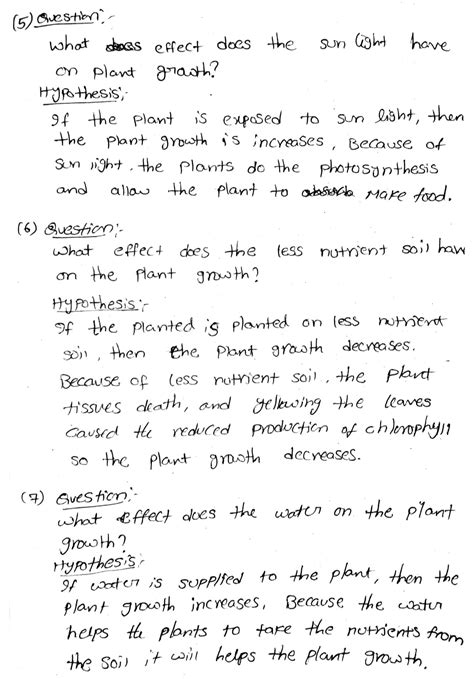 (5) Question:-
What does effect does the sun light have
on plant growth?
Hypothesis:-
If the plant is exposed to sun light, then
the plant growth is increases, Because of
sun light, the plants do the photosynthesis
and allow the plant to make food.
(6) Question:-
What effect does the less nutrient soil have
on the plant growth?
Hypothesis:-
If the planted is planted on less nutrient
soil, then the plant growth decreases.
Because of less nutrient soil, the plant
tissues death, and yellowing the leaves
caused the reduced production of chlorophyll
so the plant growth decreases.
(7) Question:-
What effect does the water on the plant
growth?
Hypothesis:-
If water is supplied to the plant, then the
plant growth increases, Because the water
helps the plants to take the nutrients from
the soil it will helps the plant growth.